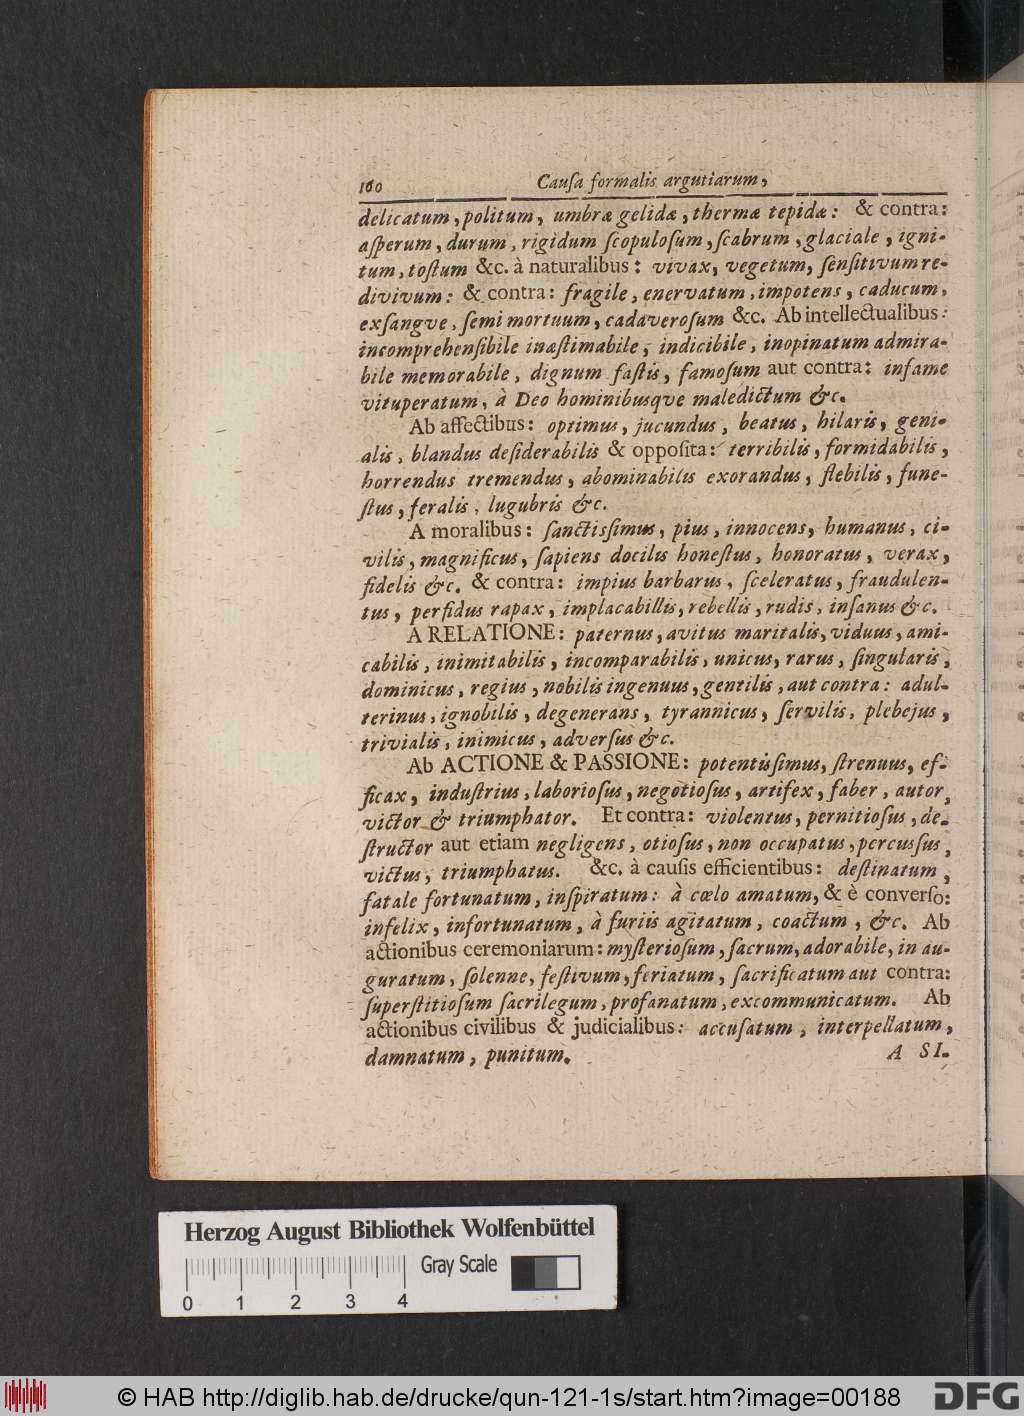 160 Cauſa formalis argutiarum,
delicatum, politum, umbræ gelidæ, thermæ tepidæ: & contra:
aſperum, durum, rigidum ſcopuloſum, ſcabrum, glaciale, igni-
tum, toſtum &c. à naturalibus: vivax, vegetum, ſenſitivum re-
divivum: & contra: fragile, enervatum, impotens, caducum,
exſangve, ſemi mortuum, cadaveroſum &c. Ab intellectualibus:
incomprehenſibile inæſtimabile, indicibile, inopinatum admira-
bile memorabile, dignum faſtis, famoſum aut contra: infame
vituperatum, à Deo hominibusqve maledictum &c.
Ab affectibus: optimus, jucundus, beatus, hilaris, geni-
alis, blandus deſiderabilis & oppoſita: terribilis, formidabilis,
horrendus tremendus, abominabilis exorandus, flebilis, fune-
ſtus, feralis, lugubris &c.
A moralibus: ſanctisſimus, pius, innocens, humanus, ci-
vilis, magnificus, ſapiens docilis honeſtus, honoratus, verax,
fidelis &c. & contra: impius barbarus, ſceleratus, fraudulen-
tus, perfidus rapax, implacabillis, rebellis, rudis, inſanus &c.
A RELATIONE: paternus, avitus maritalis, viduus, ami-
cabilis, inimitabilis, incomparabilis, unicus, rarus, ſingularis,
dominicus, regius, nobilis ingenuus, gentilis, aut contra: adul-
terinus, ignobilis, degenerans, tyrannicus, ſervilis, plebejus,
trivialis, inimicus, adverſus &c.
Ab ACTIONE & PASSIONE: potentisſimus, ſtrenuus, ef-
ficax, induſtrius, laborioſus, negotioſus, artifex, faber, autor,
victor & triumphator. Et contra: violentus, pernitioſus, de-
ſtructor aut etiam negligens, otioſus, non occupatus, percusſus,
victus, triumphatus. &c. à cauſis efficientibus: deſtinatum,
fatale fortunatum, inſpiratum: à cœlo amatum, & è converſo:
infelix, infortunatum, à furiis agitatum, coactum, &c. Ab
actionibus ceremoniarum: myſterioſum, ſacrum, adorabile, in au-
guratum, ſolenne, feſtivum, feriatum, ſacrificatum aut contra:
ſuperſtitioſum ſacrilegum, profanatum, excommunicatum. Ab
actionibus civilibus & judicialibus: accuſatum, interpellatum,
damnatum, punitum. A SI-
Herzog August Bibliothek Wolfenbüttel
Gray Scale
0 1 2 3 4
© HAB http://diglib.hab.de/drucke/qun-121-1s/start.htm?image=00188
DFG